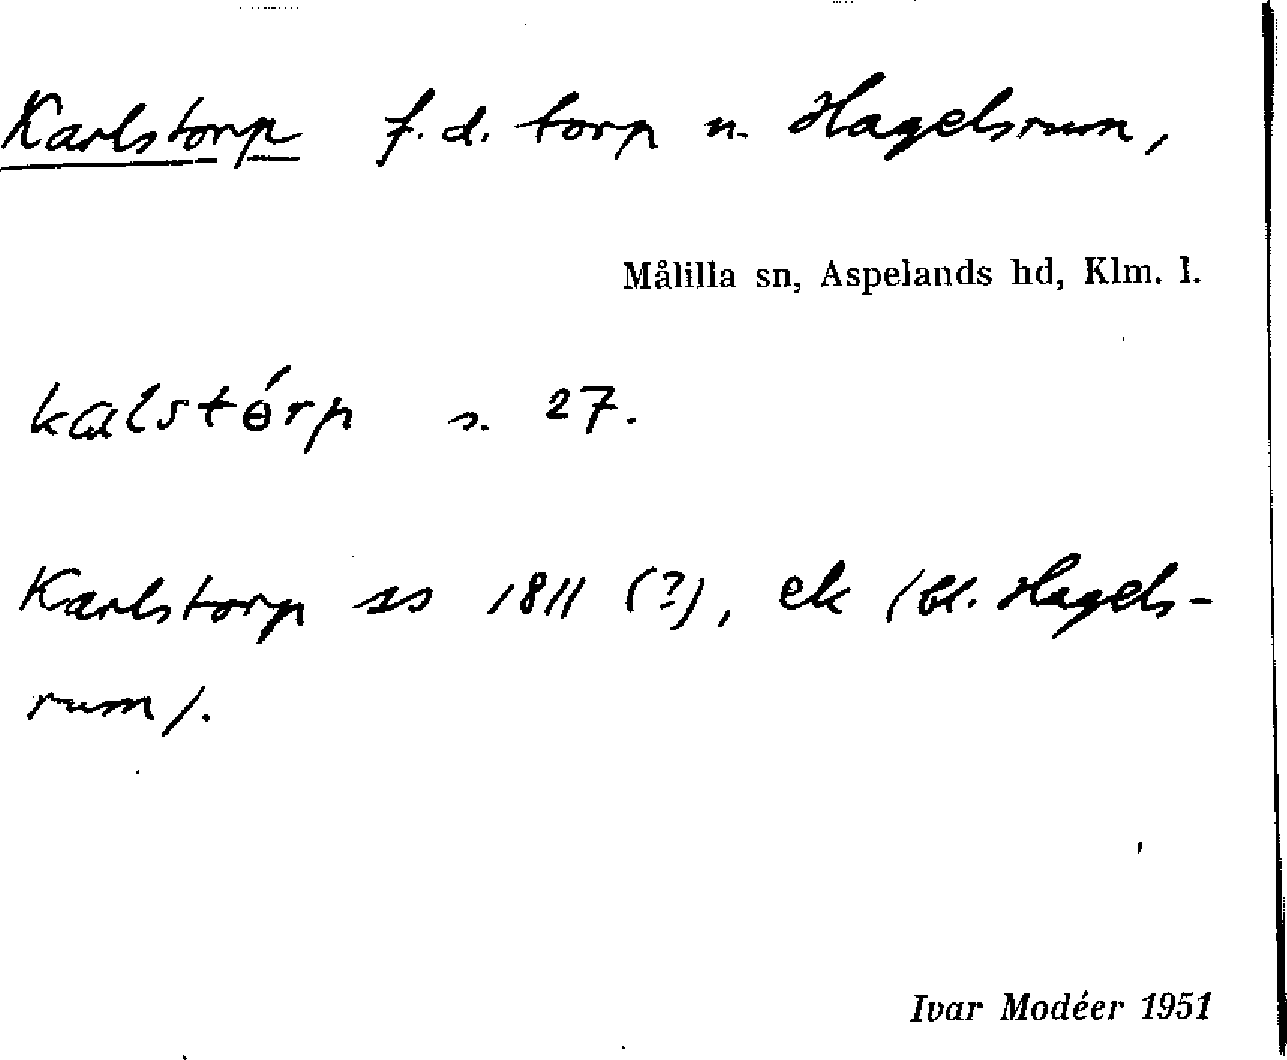 Karlstorp f.d. torp u. Hagelsrum,
Målilla sn, Aspelands hd, Klm. l.
kalstɵ́rp s. 27.
Karlstorp ss 1811 (?), ek (bl. Hagels-
rum).
Ivar Modéer 1951